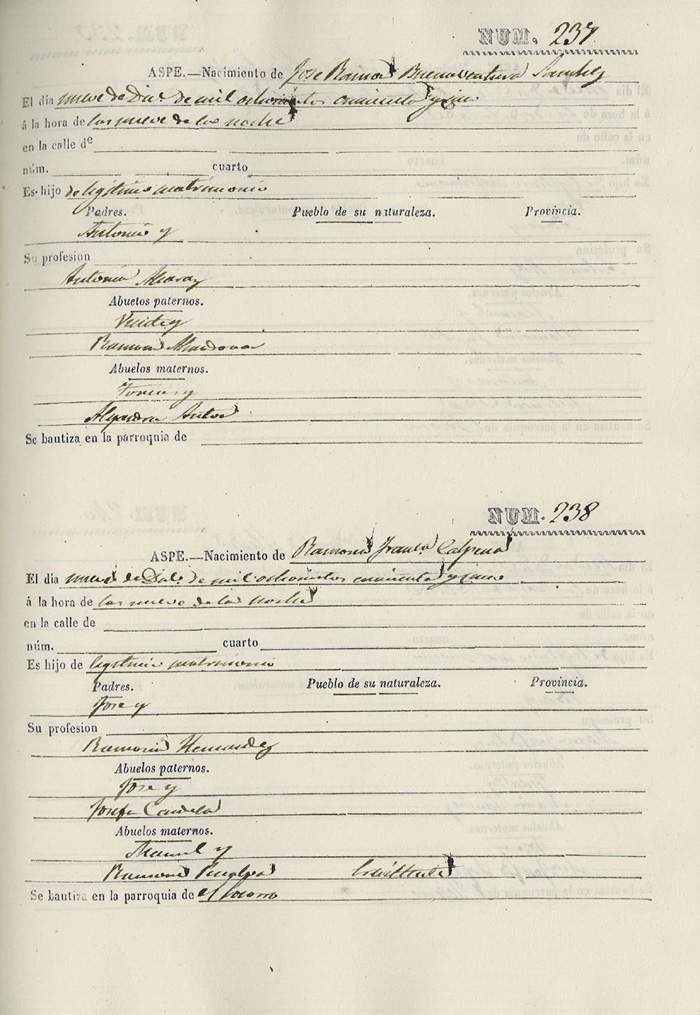 NUM. 237
ASPE.—Nacimiento de Jose Ramon Buenaventura Sanchez
El día nueve de Dice de mil ochocientos cincuenta y uno
á la hora de las nueve de la noche
en la calle de
núm. cuarto
Es hijo de legitimo matrimonio
Padres. Pueblo de su naturaleza. Provincia.
Antonio y
Su profesion
Antonia
Abuelos paternos.
Vicente y
Ramona
Abuelos maternos.
Tomas y
Alejandra
Se bautiza en la parroquia de
NUM. 238
ASPE.—Nacimiento de Ramona Calpena
El día nueve de Dice de mil ochocientos cincuenta y uno
á la hora de las nueve de la noche
en la calle de
núm. cuarto
Es hijo de legitimo matrimonio
Padres. Pueblo de su naturaleza. Provincia.
Jose y
Su profesion
Ramona Hernandez
Abuelos paternos.
Jose y
Josefa Candela
Abuelos maternos.
Manuel y
Ramona Crevillente
Se bautiza en la parroquia de el Socorro